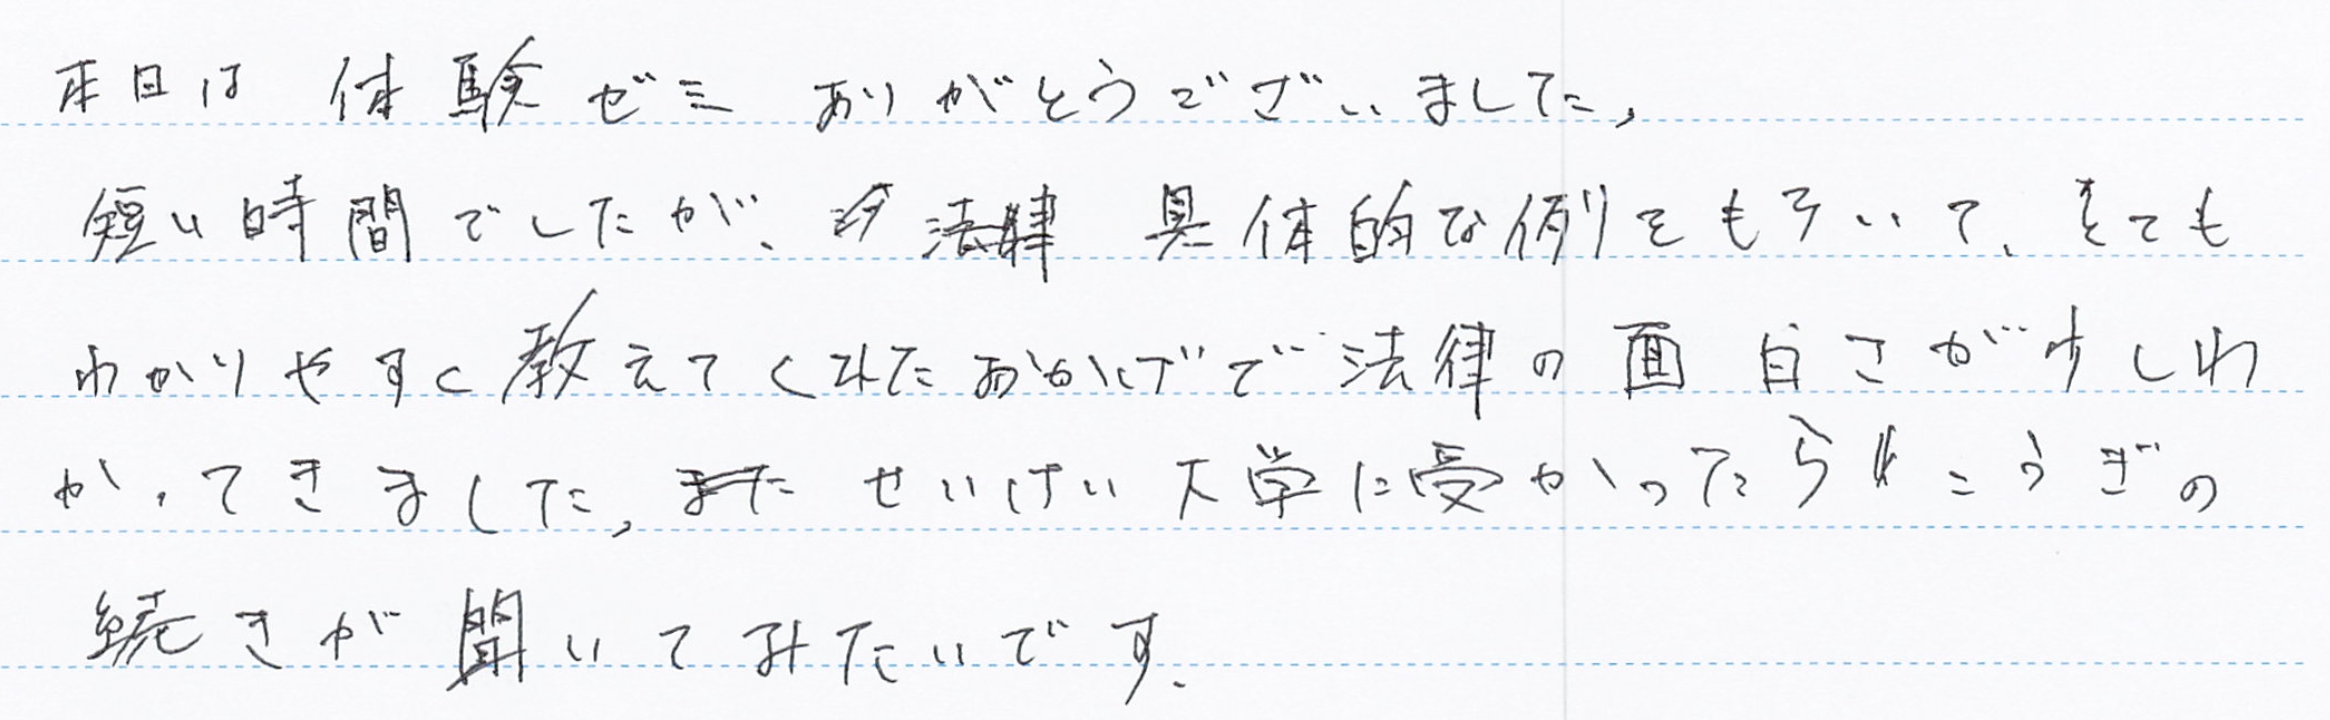 本日は 体験ゼミ ありがとうございました,
短い時間でしたが、具体的な例をもちいて、とても
わかりやすく教えてくれたおかげで法律の面白さが少しわ
かってきました, せいけい大学に受かったらこうぎの
続きが聞いてみたいです.